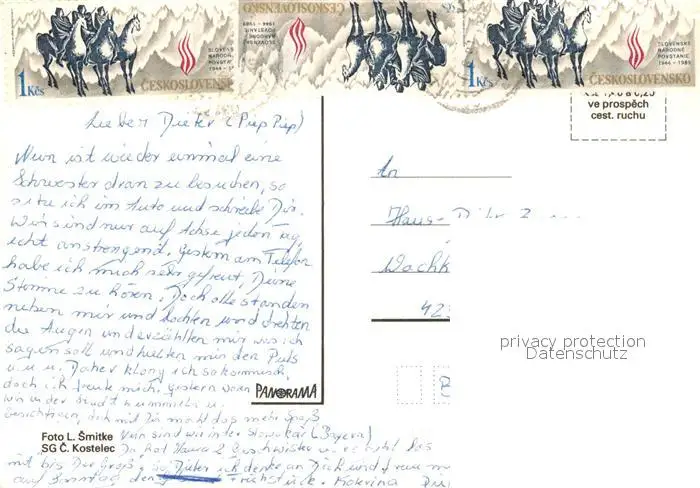 SLOVENSKÉ
NÁRODNÉ
POVSTANIE
1944-1989
1 Kčs
ČESKOSLOVENSKO
ČESKOSLOVENSKO
SLOVENSKÉ
NÁRODNÉ
POVSTANIE
1944-1989
SLOVENSKÉ
NÁRODNÉ
POVSTANIE
1944-1989
1 Kčs
ČESKOSLOVENSKO
ve prospěch
cest. ruchu
Lieber Dieter (Piep Piep)
Nun ist wieder einmal eine
Schwester dran zu besuchen, so
sitze ich im Auto und schreibe Dir.
Wir sind nur auf Achse jeden Tag,
echt anstrengend. Gestern am Telefon
habe ich mich sehr gefreut, Deine
Stimme zu hören. Doch alle standen
neben mir und lachten und drehten
die Augen und erzählten mir was ich
sagen soll und hielten mir den Puls
u.u. Daher klang ich so komisch,
doch ich freute mich. Gestern waren
wir in der Stadt bummeln u.
besichtigen, doch mit Dir macht das mehr Spaß
Nun sind wir in der Slowakei (Bayern)
Da hat Mama 2 Geschwister
mit bis Die Grüße, so Dieter ich denke an Dich und freue m
auf Sonntag den Frühstück. Katerina
PANORAMA
Foto L. Šmitke
SG Č. Kostelec
An
Hans-
Wachk
42
privacy protection
Datenschutz